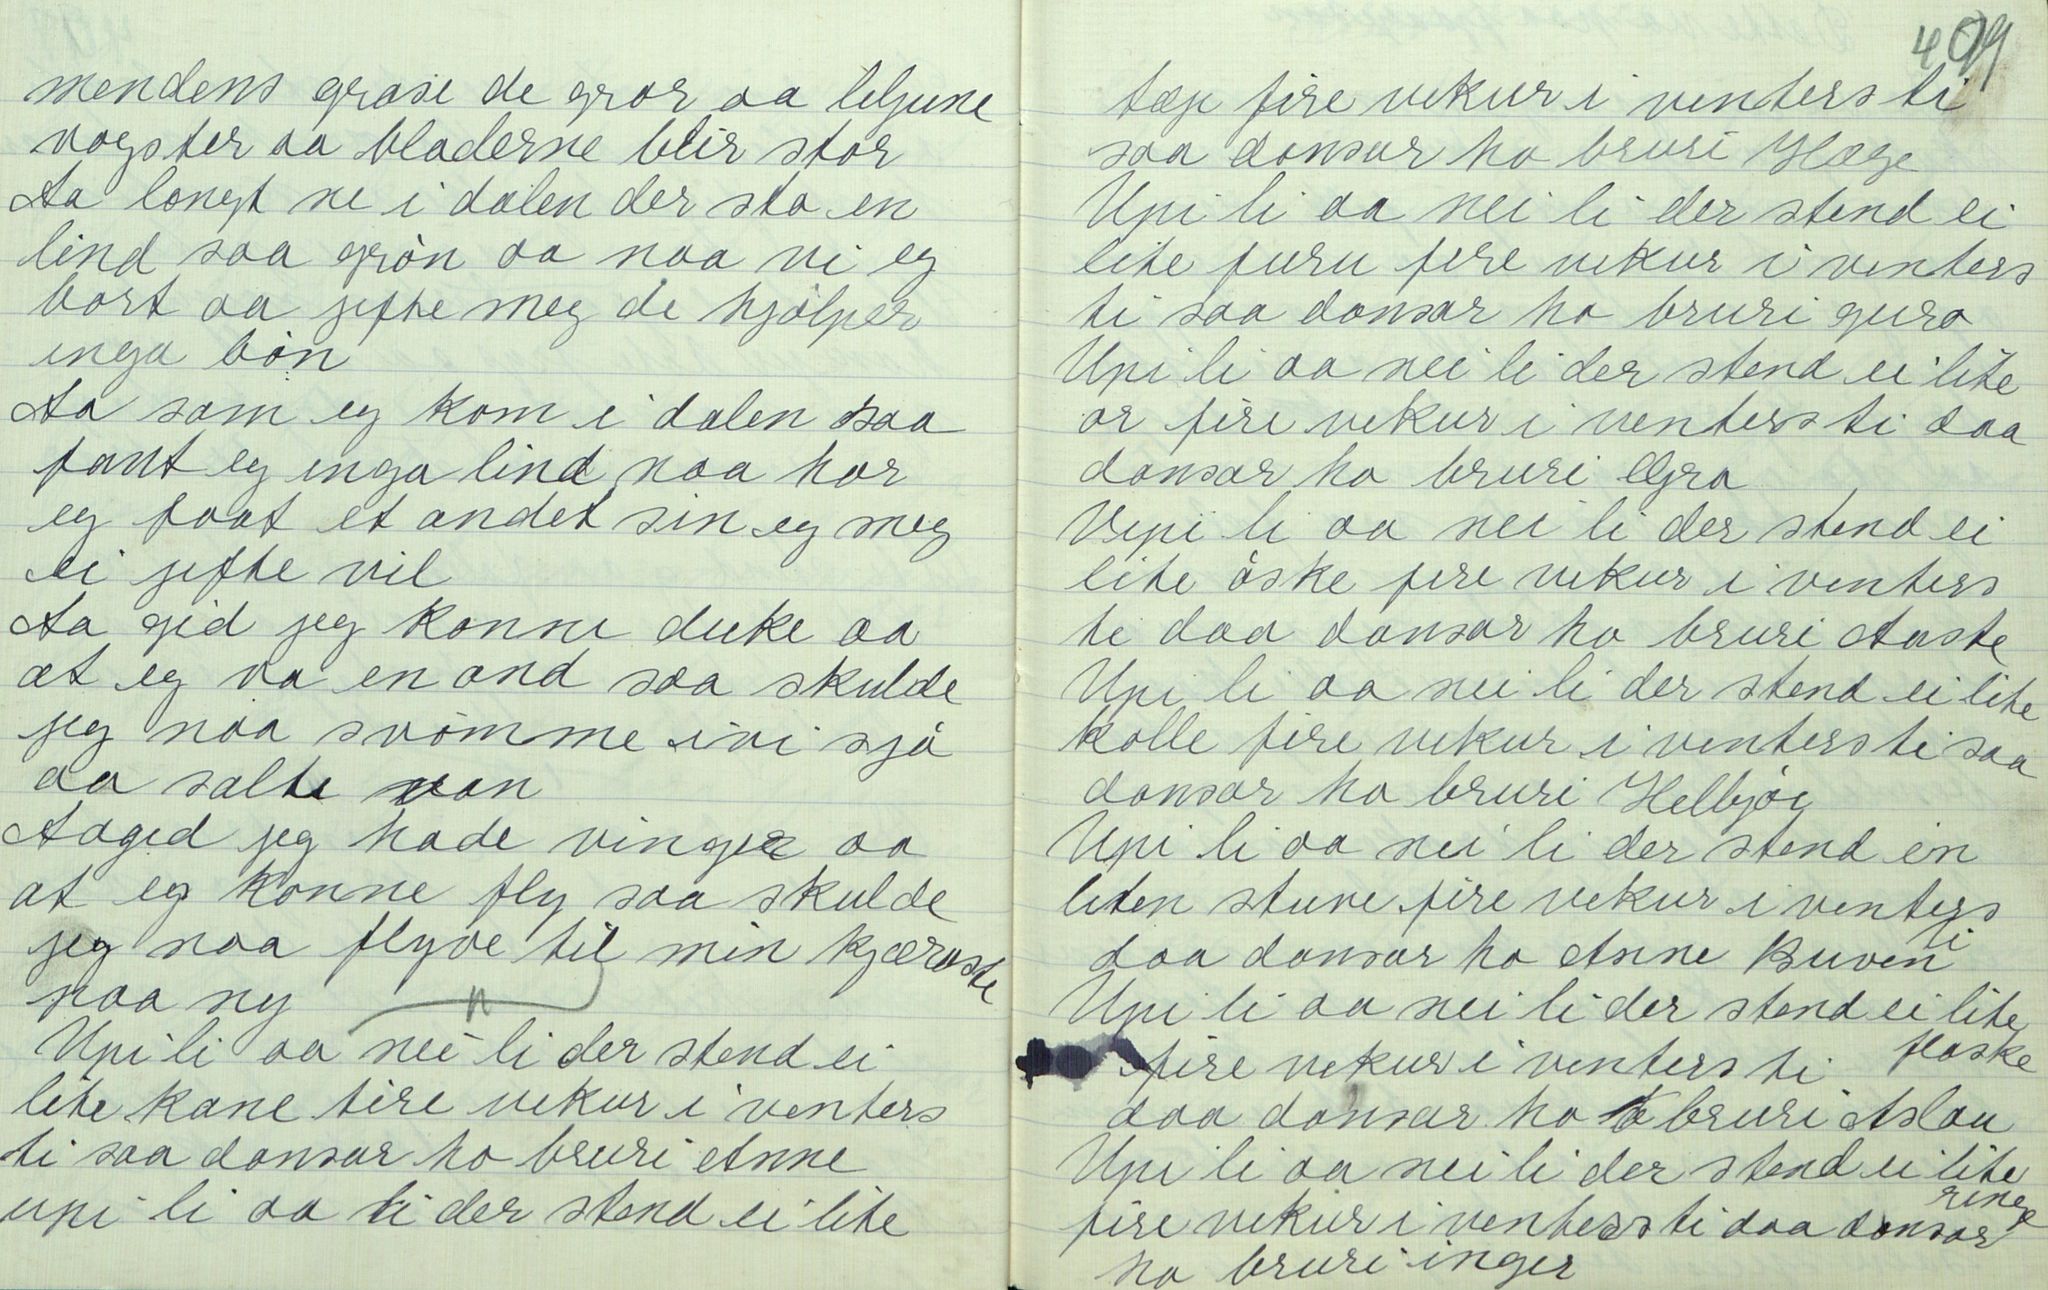 mendens grase de gror aa liljune
vogster aa bladerne blir stor
Aa langt ne i dalen der sta en
lind saa grön aa naa vi eg
bort aa jifte meg de hjölper
inga bön
Aa som eg kom i dalen saa
fant eg inga lind naa har
eg faat et andet sin eg meg
ei jifte vil
Aa gid jeg konne duke aa
at eg va en and saa skulde
jeg naa svömme ivi sjö
aa salte van
Aagid jeg hade vinger aa
at eg konne fly saa skulde
jeg naa flyve til min kjæraste
paa ny
Upi li aa nei li der stend ei
lite kane tire vekur i venters
ti saa dansar ho bruri Anne
upi li aa li der stend ei lite
409
tæje fire vekur i venters ti
saa dansar ho bruri Hæge
Upi li aa nei li der stend ei
lite furu fire vekur i venters
ti saa dansar ho bruri guro
Upi li aa nei li der stend ei lite
or fire vekur i venters ti daa
dansar ho bruri Ågra
Upi li aa nei li der stend ei
lite öske fire vekur i venters
ti daa dansar ho bruri Aaste
Upi li aa nei li der stend ei lite
kolle fire vekur i venters ti saa
dansar ho bruri Helbjög
Upi li aa nei li der stend ein
liten stuve fire vekur i venters
ti
daa dansar ho Anne Buven
Upi li aa nei li der stend ei lite
flaske
fire vekur i venters ti
daa dansar ho bruri Aslau
Upi li aa nei li der stend ei lite
ringe
fire vekur i venters ti daa dansar
ho bruri inger